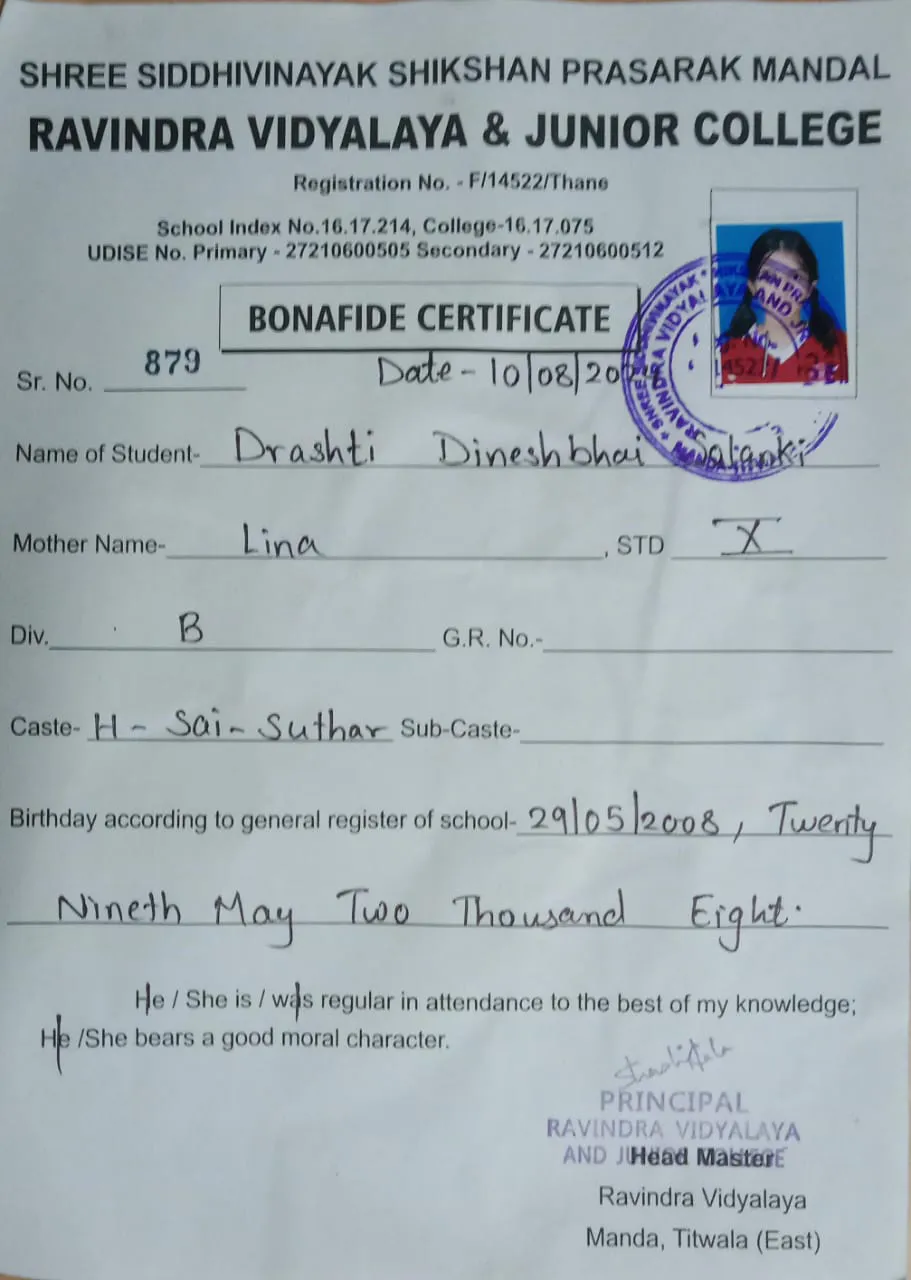 SHREE SIDDHIVINAYAK SHIKSHAN PRASARAK MANDAL
RAVINDRA VIDYALAYA & JUNIOR COLLEGE
Registration No. - F/14522/Thane
School Index No.16.17.214, College-16.17.075
UDISE No. Primary - 27210600505 Secondary - 27210600512
BONAFIDE CERTIFICATE
Sr. No. 879 Date - 10/08/20
Name of Student- Drashti Dineshbhai Salanki
Mother Name- Lina, STD X
Div. B G.R. No.-
Caste- H - Sai - Suthar Sub-Caste-
Birthday according to general register of school- 29/05/2008, Twenty
Nineth May Two Thousand Eight.
He / She is / was regular in attendance to the best of my knowledge;
He /She bears a good moral character.
PRINCIPAL
RAVINDRA VIDYALAYA
AND JUNIOR COLLEGE
Head Master
Ravindra Vidyalaya
Manda, Titwala (East)